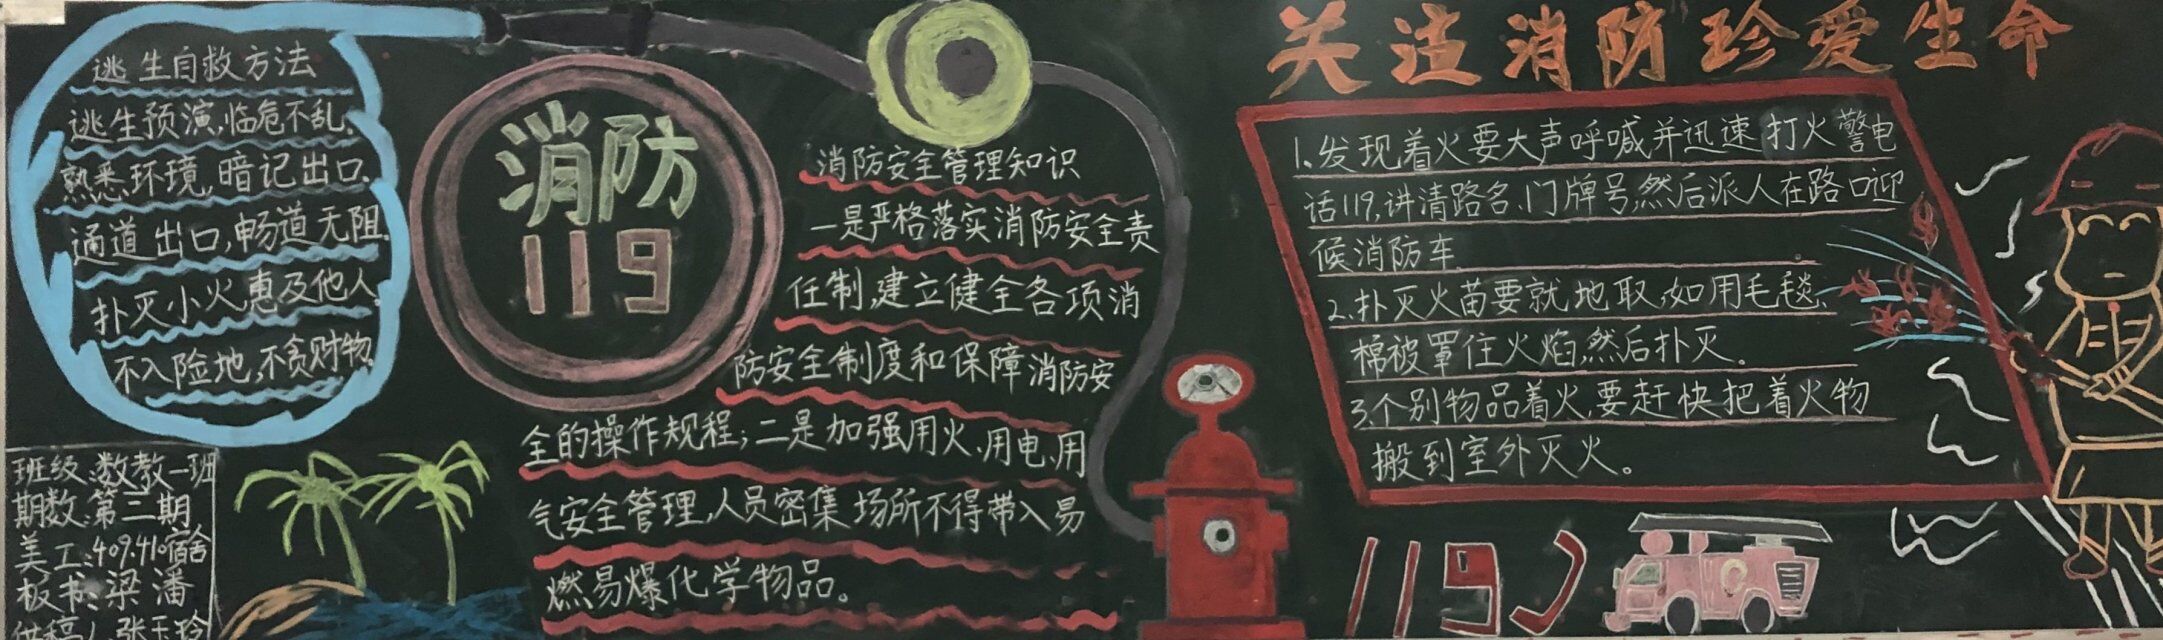 逃生自救方法
逃生预演,临危不乱.
熟悉环境,暗记出口.
通道出口,畅道无阻.
扑灭小火,惠及他人.
不入险地,不贪财物.
班级:数教一班
期数:第二期
美工:409.410宿舍
板书:梁潘
供稿人:张玉玲
消防
119
消防安全管理知识
一是严格落实消防安全责
任制,建立健全各项消
防安全制度和保障消防安
全的操作规程;二是加强用火、用电、用
气安全管理,人员密集场所不得带入易
燃易爆化学物品。
关注消防珍爱生命
1.发现着火要大声呼喊并迅速打火警电
话119,讲清路名、门牌号,然后派人在路口迎
候消防车.
2.扑灭火苗要就地取,如用毛毯、
棉被罩住火焰,然后扑灭。
3.个别物品着火,要赶快把着火物
搬到室外灭火。
119